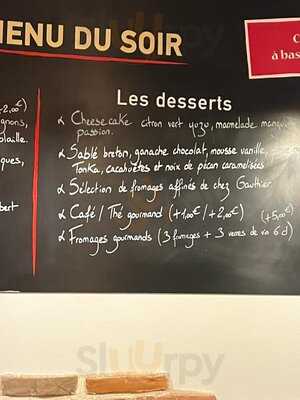 MENU DU SOIR
+2,00€)
gnons,
olaille.
ques,
bert
C
à bas
Les desserts
Cheesecake citron vert yuzu, marmelade mangue
passion.
Sablé breton, ganache chocolat, mousse vanille,
Tonka, cacahuètes et noix de pécan caramélisées
Sélection de fromages affinés de chez Gauthier.
Café / Thé gourmand (+1,00€ / +2,00€) (+5,00€)
Fromages gourmands (3 fromages + 3 verres de vin 6cl)
sluurpy